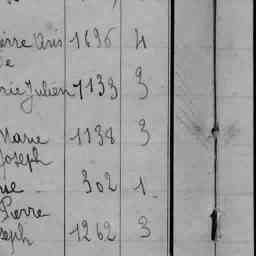 ierre Aris 1696 4
e
rie Julien 1133 3
Marie 1138 3
Joseph
ue 302 1
Pierre
seph 1262 3